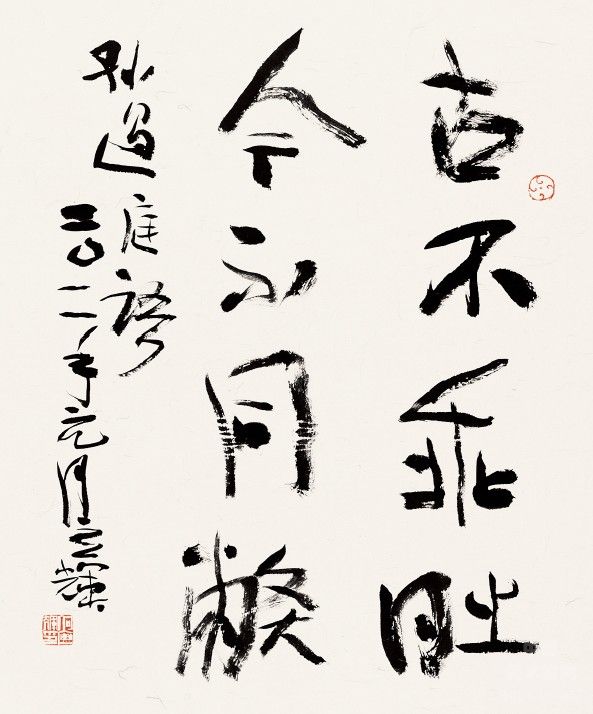 古不乖时
今不同弊
孙過庭語
二〇一二年元月应輝